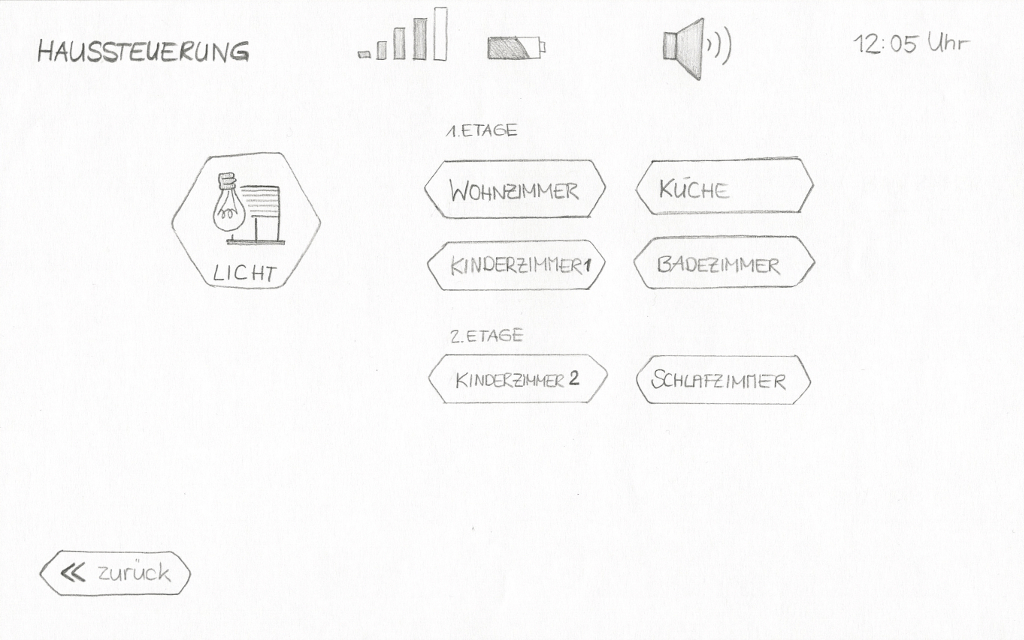 HAUSSTEUERUNG
12:05 Uhr
1. ETAGE
WOHNZIMMER
KÜCHE
KINDERZIMMER 1
BADEZIMMER
LICHT
2. ETAGE
KINDERZIMMER 2
SCHLAFZIMMER
« zurück